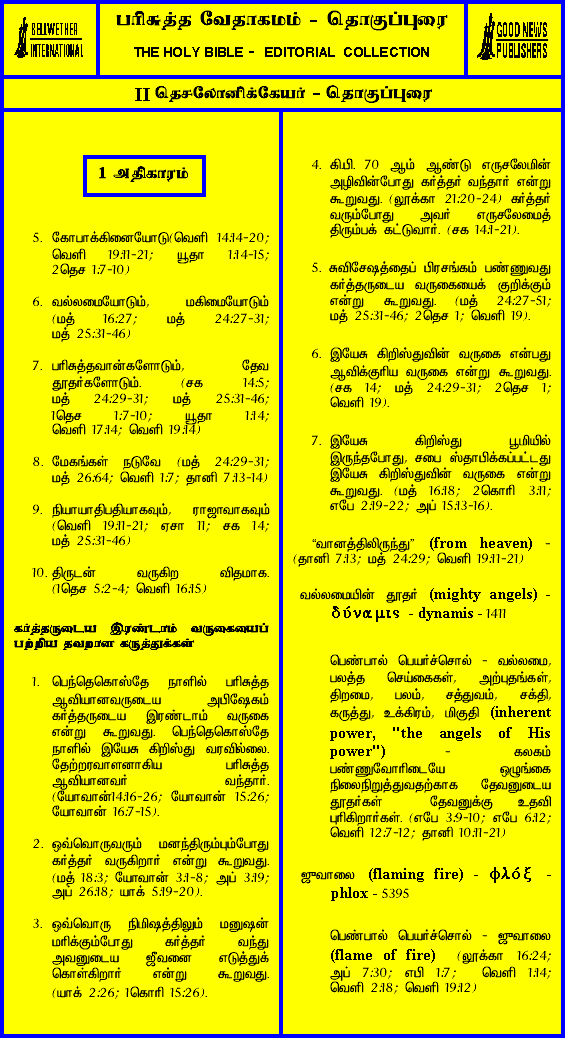 BELLWETHER
INTERNATIONAL
பரிசுத்த வேதாகமம் - தொகுப்புரை
THE HOLY BIBLE - EDITORIAL COLLECTION
GOOD NEWS
PUBLISHERS
II தெசலோனிக்கேயர் - தொகுப்புரை
1 அதிகாரம்
5. கோபாக்கினையோடு(வெளி 14:14-20;
வெளி 19:11-21; யூதா 1:14-15;
2தெச 1:7-10)
6. வல்லமையோடும், மகிமையோடும்
(மத் 16:27; மத் 24:27-31;
மத் 25:31-46)
7. பரிசுத்தவான்களோடும், தேவ
தூதர்களோடும். (சக 14:5;
மத் 24:29-31; மத் 25:31-46;
1தெச 1:7-10; யூதா 1:14;
வெளி 17:14; வெளி 19:14)
8. மேகங்கள் நடுவே (மத் 24:29-31;
மத் 26:64; வெளி 1:7; தானி 7:13-14)
9. நியாயாதிபதியாகவும், ராஜாவாகவும்
(வெளி 19:11-21; ஏசா 11; சக 14;
மத் 25:31-46)
10. திருடன் வருகிற விதமாக.
(1தெச 5:2-4; வெளி 16:15)
கர்த்தருடைய இரண்டாம் வருகையைப்
பற்றிய தவறான கருத்துக்கள்
1. பெந்தெகொஸ்தே நாளில் பரிசுத்த
ஆவியானவருடைய அபிஷேகம்
கர்த்தருடைய இரண்டாம் வருகை
என்று கூறுவது. பெந்தெகொஸ்தே
நாளில் இயேசு கிறிஸ்து வரவில்லை.
தேற்றரவாளனாகிய பரிசுத்த
ஆவியானவர் வந்தார்.
(யோவான்14:16-26; யோவான் 15:26;
யோவான் 16:7-15).
2. ஒவ்வொருவரும் மனந்திரும்பும்போது
கர்த்தர் வருகிறார் என்று கூறுவது.
(மத் 18:3; யோவான் 3:1-8; அப் 3:19;
அப் 26:18; யாக் 5:19-20).
3. ஒவ்வொரு நிமிஷத்திலும் மனுஷன்
மரிக்கும்போது கர்த்தர் வந்து
அவனுடைய ஜீவனை எடுத்துக்
கொள்கிறார் என்று கூறுவது.
(யாக் 2:26; 1கொரி 15:26).
4. கி.பி. 70 ஆம் ஆண்டு எருசலேமின்
அழிவின்போது கர்த்தர் வந்தார் என்று
கூறுவது. (லூக்கா 21:20-24) கர்த்தர்
வரும்போது அவர் எருசலேமைத்
திரும்பக் கட்டுவார். (சக 14:1-21).
5. சுவிசேஷத்தைப் பிரசங்கம் பண்ணுவது
கர்த்தருடைய வருகையைக் குறிக்கும்
என்று கூறுவது. (மத் 24:27-51;
மத் 25:31-46; 2தெச 1; வெளி 19).
6. இயேசு கிறிஸ்துவின் வருகை என்பது
ஆவிக்குரிய வருகை என்று கூறுவது.
(சக 14; மத் 24:29-31; 2தெச 1;
வெளி 19).
7. இயேசு கிறிஸ்து பூமியில்
இருந்தபோது, சபை ஸ்தாபிக்கப்பட்டது
இயேசு கிறிஸ்துவின் வருகை என்று
கூறுவது. (மத் 16:18; 2கொரி 3:11;
எபே 2:19-22; அப் 15:13-16).
"வானத்திலிருந்து" (from heaven) -
(தானி 7:13; மத் 24:29; வெளி 19:11-21)
வல்லமையின் தூதர் (mighty angels) -
δύναμις - dynamis - 1411
பெண்பால் பெயர்ச்சொல் - வல்லமை,
பலத்த செய்கைகள், அற்புதங்கள்,
திறமை, பலம், சத்துவம், சக்தி,
கருத்து, உக்கிரம், மிகுதி (inherent
power, "the angels of His
power") - கலகம்
பண்ணுவோரிடையே ஒழுங்கை
நிலைநிறுத்துவதற்காக தேவனுடைய
தூதர்கள் தேவனுக்கு உதவி
புரிகிறார்கள். (எபே 3:9-10; எபே 6:12;
வெளி 12:7-12; தானி 10:11-21)
ஜுவாலை (flaming fire) - φλόξ -
phlox - 5395
பெண்பால் பெயர்ச்சொல் - ஜுவாலை
(flame of fire) (லூக்கா 16:24;
அப் 7:30; எபி 1:7; வெளி 1:14;
வெளி 2:18; வெளி 19:12)